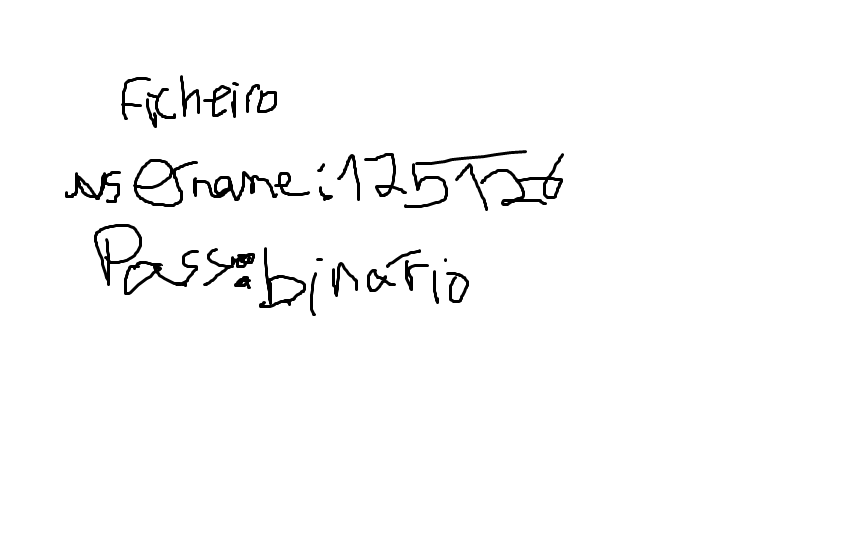 Ficheiro
username:125126
Pass:binario